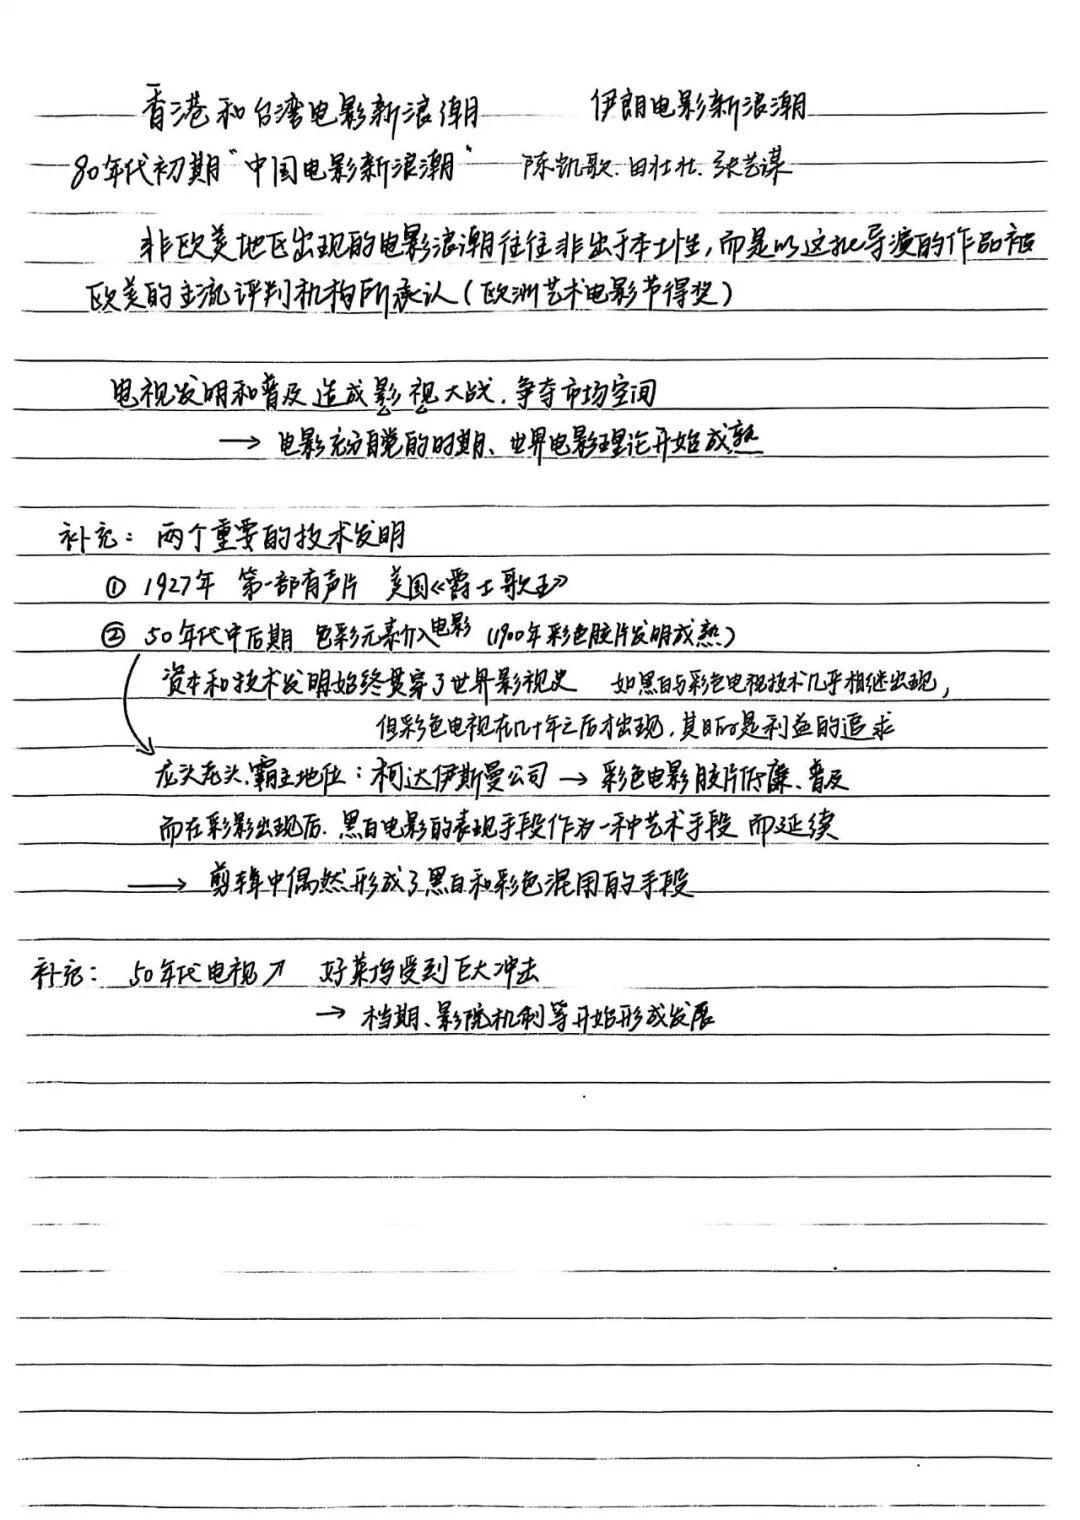 香港和台湾电影新浪潮 伊朗电影新浪潮
80年代初期“中国电影新浪潮” 陈凯歌.田壮壮.张艺谋
非欧美地区出现的电影浪潮往往非出于本土性,而是以这批导演的作品被
欧美的主流评判机构所承认(欧洲艺术电影节得奖)
电视发明和普及造成影视大战.争夺市场空间
→ 电影充分自觉的时期、世界电影理论开始成熟
补充: 两个重要的技术发明
① 1927年 第一部有声片 美国《爵士歌王》
② 50年代中后期 色彩元素加入电影 (1900年彩色胶片发明成熟)
资本和技术发明始终贯穿了世界影视史 如黑白与彩色电视技术几乎相继出现,
但彩色电视在几十年之后才出现.其目的是利益的追求
龙头老大.霸主地位:柯达伊斯曼公司 → 彩色电影胶片低廉、普及
而在彩影出现后.黑白电影的表现手段作为一种艺术手段而延续
→ 剪辑中偶然形成了黑白和彩色混用的手段
补充: 50年代电视↗ 好莱坞受到巨大冲击
→ 档期、影院机制等开始形成发展